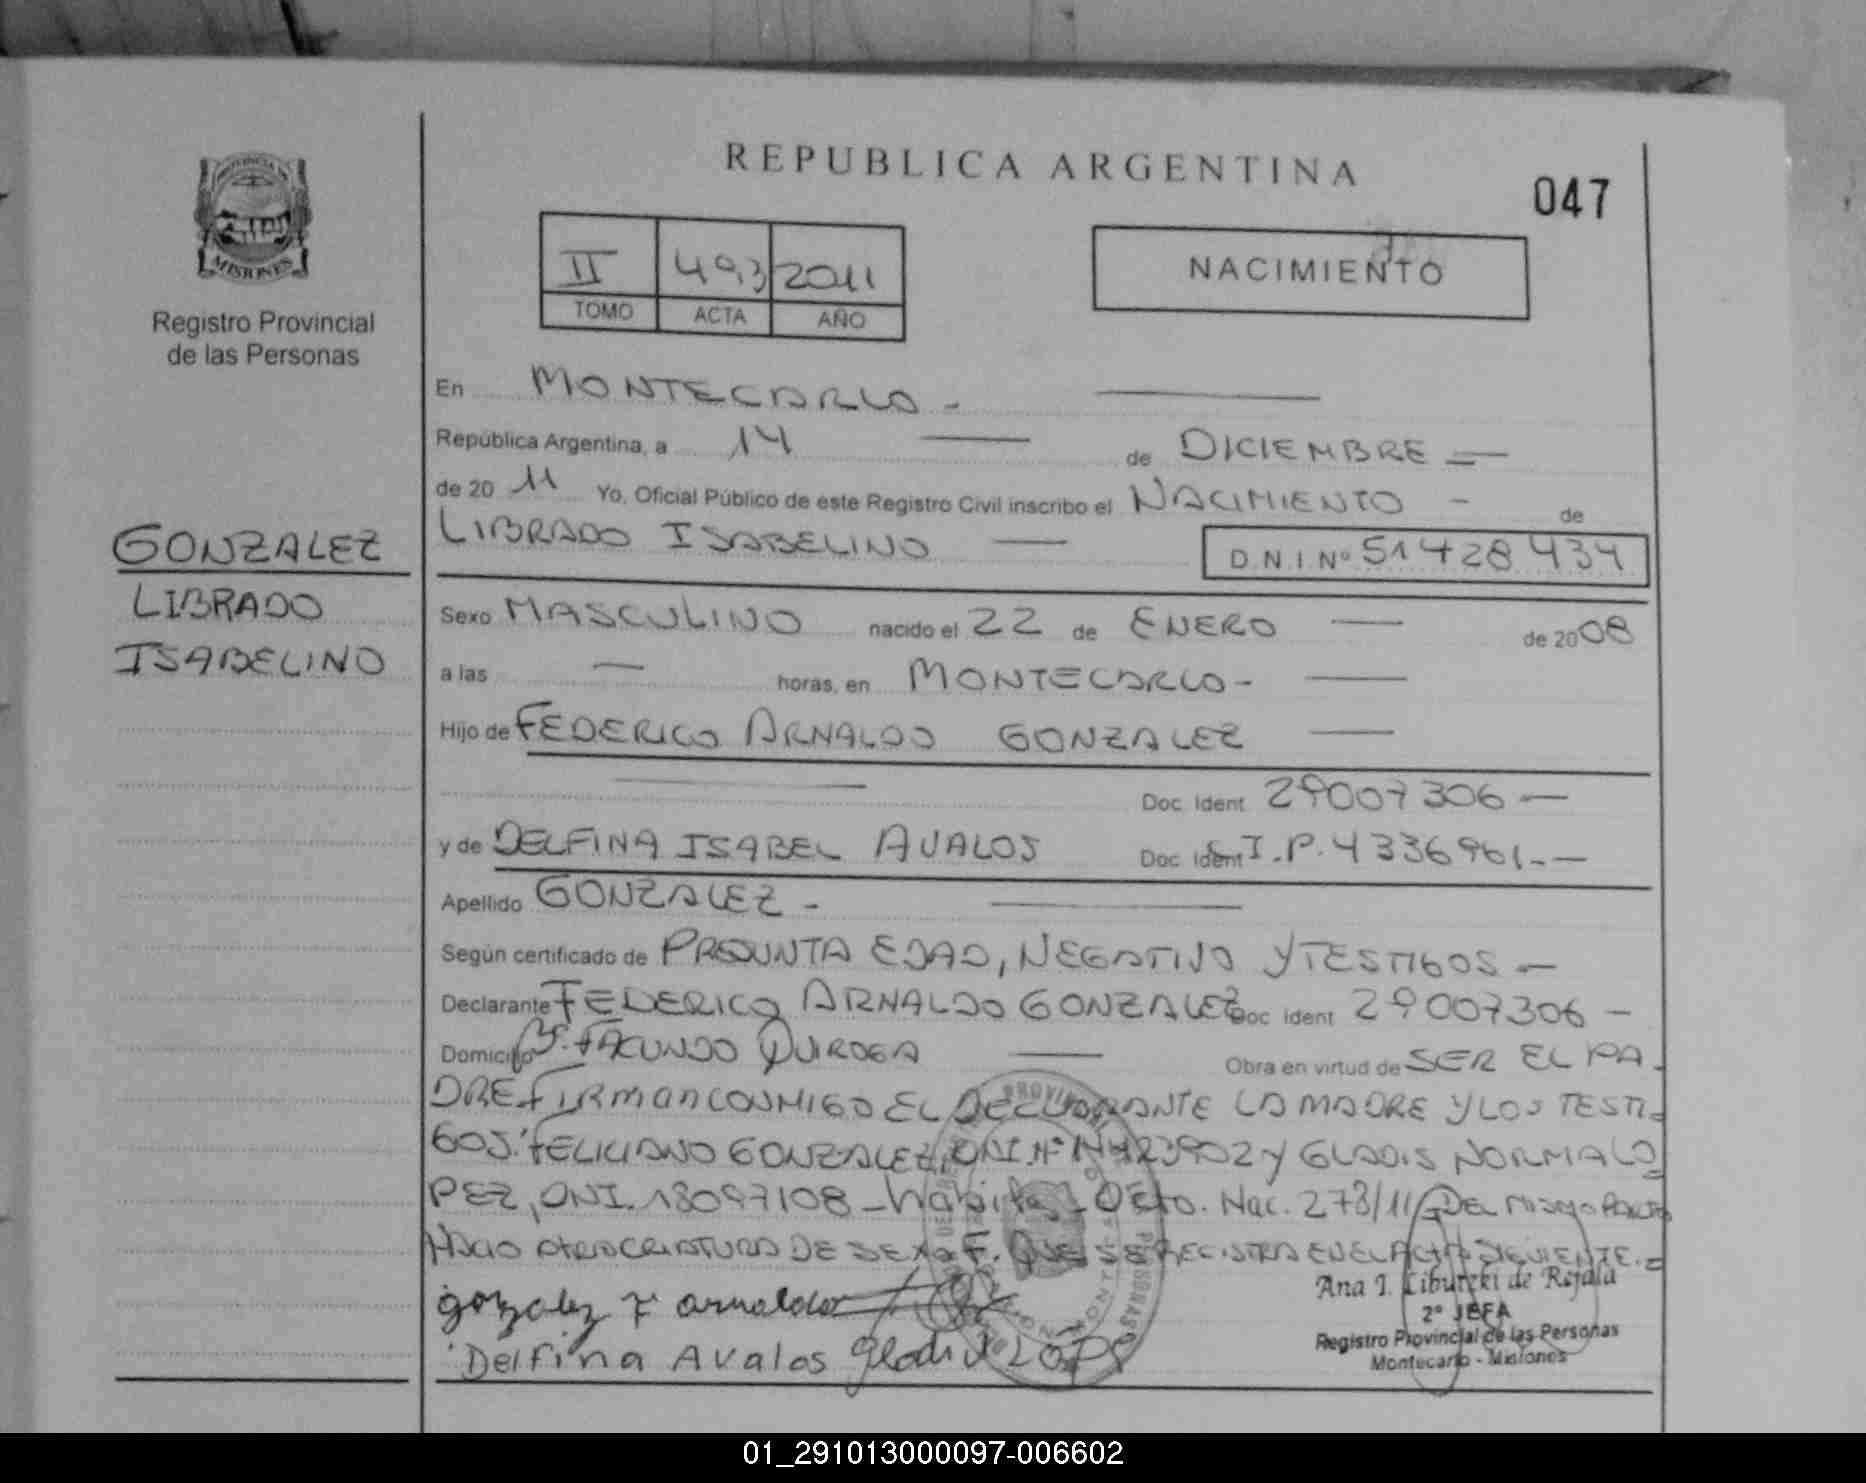 REPUBLICA ARGENTINA
047
PROVINCIA
MISIONES
Registro Provincial
de las Personas
II 493 2011
TOMO ACTA AÑO
NACIMIENTO
En MONTECARLO -
República Argentina, a 14 de DICIEMBRE
de 20 11 Yo, Oficial Público de este Registro Civil inscribo el NACIMIENTO - de
GONZALEZ
LIBRADO
ISABELINO
LIBRADO ISABELINO D.N.I. Nº 51428434
Sexo MASCULINO nacido el 22 de ENERO de 2008
a las — horas, en MONTECARLO-
Hijo de FEDERICO ARNALDO GONZALEZ
Doc. Ident 29007306 —
y de DELFINA ISABEL AVALOS Doc. Ident C.I.P. 4336961.-—
Apellido GONZALEZ -
Según certificado de PRESUNTA EDAD, NEGATIVO Y TESTIGOS —
Declarante FEDERICO ARNALDO GONZALEZ Doc Ident 29007306 —
Domicilio Bº. FACUNDO QUIROGA Obra en virtud de SER EL PA-
DRE FIRMAN CONMIGO EL DECLARANTE LA MADRE Y LOS TESTI=
GOS: FELICIANO GONZALEZ, DNI. Nº Y GLADIS NORMA LO=
PEZ, DNI. 18097108 - Dcto. Nac. 278/11 DEL MISMO PARTO
NACIO OTRA CRIATURA DE SEXO F. QUE SE REGISTRA EN EL ACTA SIGUIENTE.=
gonzalez F arnaldo
Delfina Avalos Gladis LOPE
Ana I. Ciburzki de Rejala
2º JEFA
Registro Provincial de las Personas
Montecarlo - Misiones
01_291013000097-006602